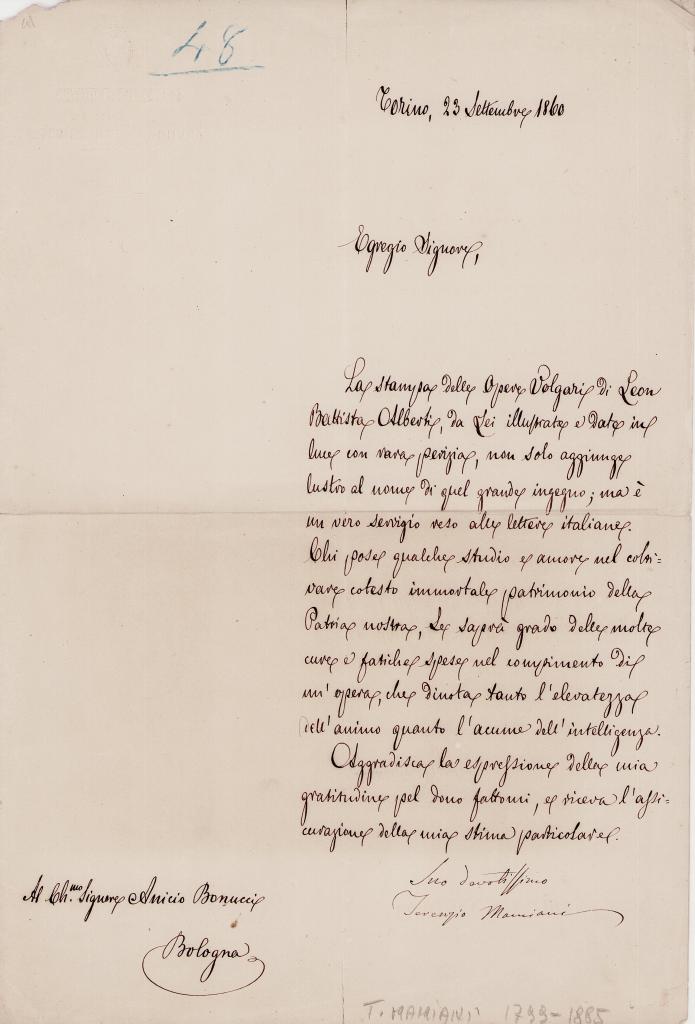 48
Torino, 23 Settembre 1860
Egregio Signore,
La stampa delle Opere Volgari di Leon
Battista Alberti, da Lei illustrate e date in
luce con rara perizia, non solo aggiunge
lustro al nome di quel grande ingegno; ma è
un vero servigio reso alle lettere italiane.
Chi pose qualche studio e amore nel colti=
vare cotesto immortale patrimonio della
Patria nostra, Le saprà grado delle molte
cure e fatiche spese nel compimento di
un' opera, che dinota tanto l'elevatezza
dell'animo quanto l'acume dell'intelligenza.
Aggradisca la espressione della mia
gratitudine pel dono fattomi, e riceva l'assi-
curazione della mia stima particolare.
Suo devotissimo
Terenzio Mamiani
Al Ch.mo Signore Anicio Bonucci
Bologna
T. MAMIANI 1799-1885